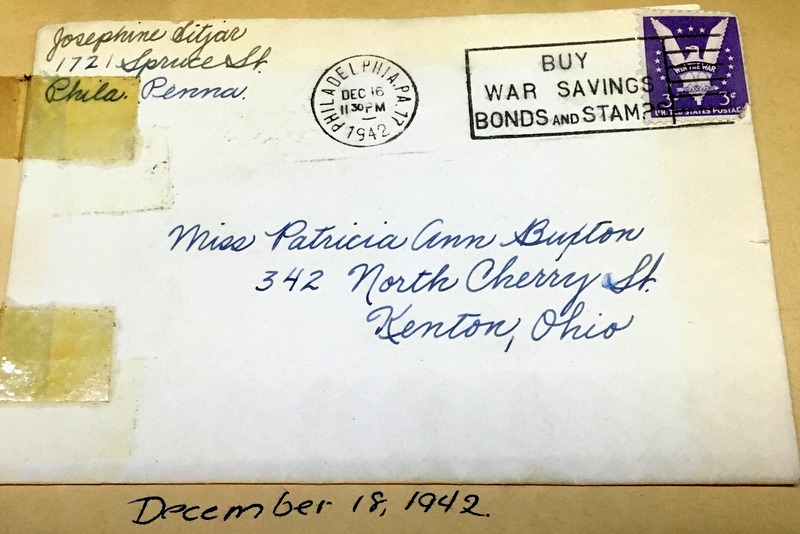 Josephine Sitjar
1721 Spruce St.
Phila. Penna.
PHILADELPHIA, PA. 17
DEC 16
11 30 PM
1942
BUY
WAR SAVINGS
BONDS AND STAMPS
WIN THE WAR
3¢ 3¢
UNITED STATES POSTAGE
Miss Patricia Ann Buxton
342 North Cherry St.
Kenton, Ohio
December 18, 1942.